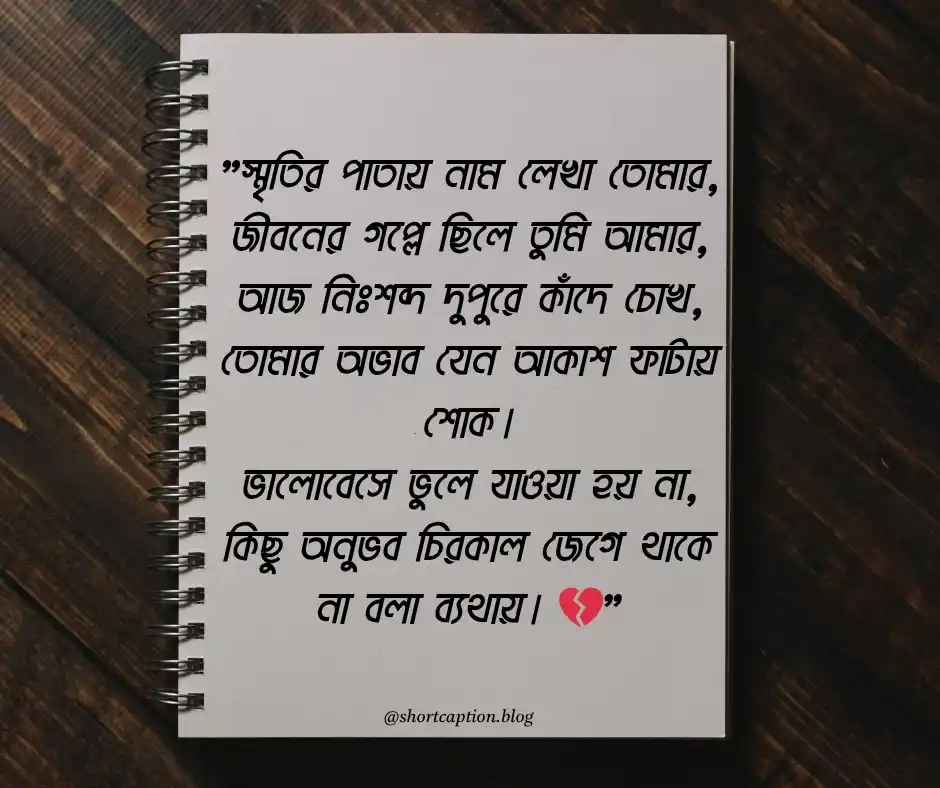 ”স্মৃতির পাতায় নাম লেখা তোমার,
জীবনের গল্পে ছিলে তুমি আমার,
আজ নিঃশব্দ দুপুরে কাঁদে চোখ,
তোমার অভাব যেন আকাশ ফাটায়
শোক।
ভালোবেসে ভুলে যাওয়া হয় না,
কিছু অনুভব চিরকাল জেগে থাকে
না বলা ব্যথায়। 💔”
@shortcaption.blog